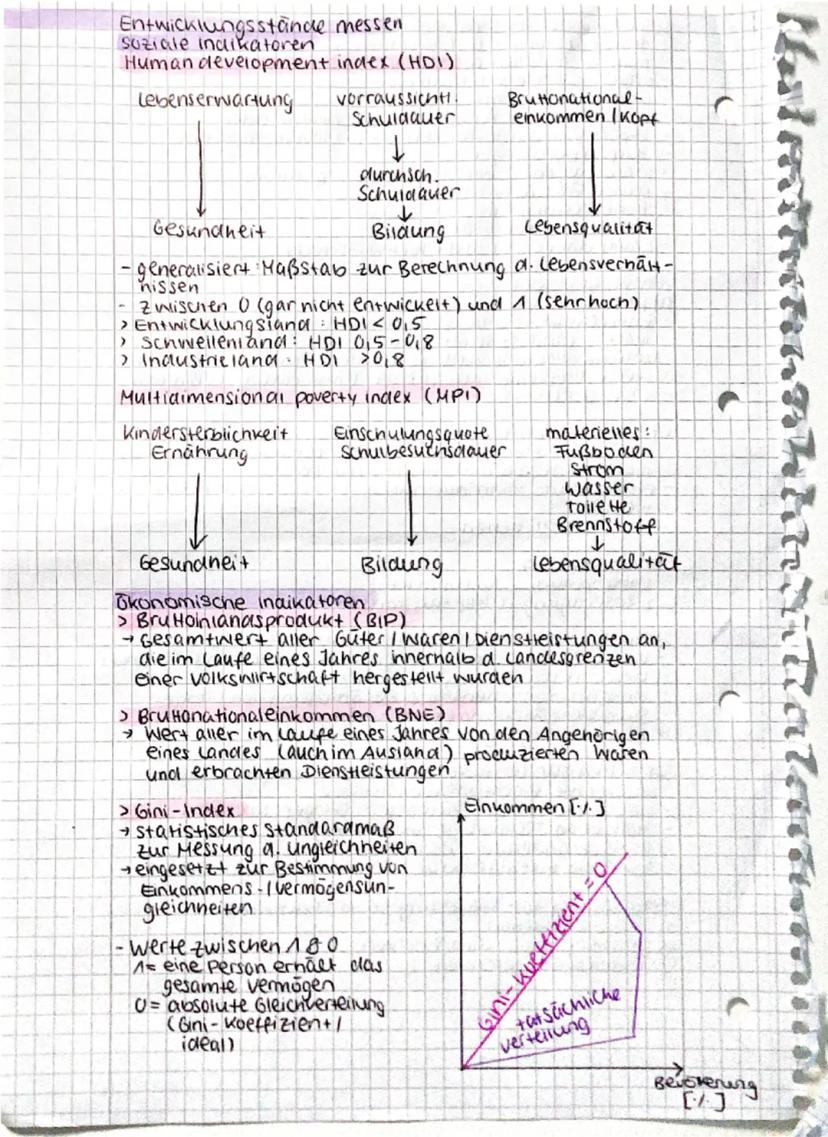 Entwicklungsstände messen
soziale Indikatoren
Human development index (HDI)
Lebenserwartung
vorraussichtl.
Schuldauer
Bruttonational-
einkommen / Kopf
durchsch.
Schuldauer
Gesundheit
Bildung
Lebensqualität
- generalisiert: Maßstab zur Berechnung d. Lebensverhält-
nissen
- zwischen 0 (gar nicht entwickelt) und 1 (sehr hoch)
> Entwicklungsland: HDI < 0,5
> Schwellenland: HDI 0,5-0,8
> Industrieland: HDI >0,8
Multidimensional poverty index (MPI)
Kindersterblichkeit
Ernährung
Einschulungsquote
Schulbesuchsdauer
materielles:
Fußboden
Strom
Wasser
Toilette
Brennstoff
Gesundheit
Bildung
Lebensqualität
Ökonomische Indikatoren
> Bruttoinlandsprodukt (BIP)
→ Gesamtwert aller Güter / Waren / Dienstleistungen an,
die im Laufe eines Jahres innerhalb d. Landesgrenzen
einer Volkswirtschaft hergestellt wurden
> Bruttonationaleinkommen (BNE)
→ Wert aller im Laufe eines Jahres von den Angehörigen
eines Landes (auch im Ausland) produzierten Waren
und erbrachten Dienstleistungen
> Gini-Index
→ statistisches Standardmaß
zur Messung d. Ungleichheiten
→ eingesetzt zur Bestimmung von
Einkommens-/Vermögensun-
gleichheiten
- Werte zwischen 1 & 0
1= eine Person erhält das
gesamte Vermögen
0= absolute Gleichverteilung
(Gini-Koeffizient /
ideal)
Einkommen [%]
Gini-Koeffizient = 0
tatsächliche
Verteilung
Bevölkerung
[%]